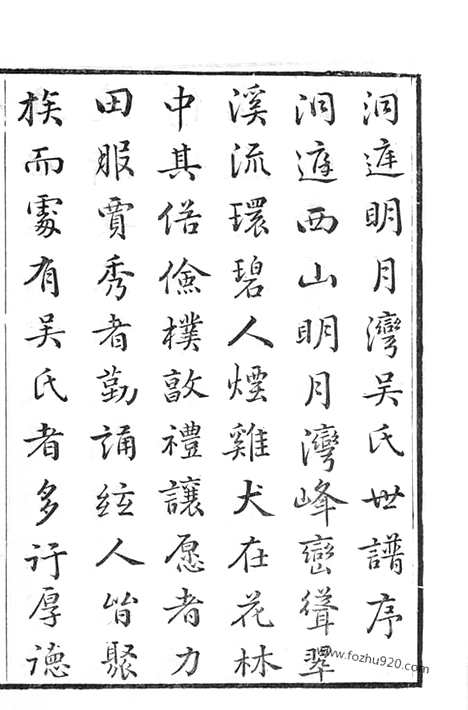 洞庭明月灣吳氏世譜序
洞庭西山明月灣峰巒聳翠
溪流環碧人煙雞犬在花林
中其俗儉樸敦禮讓愿者力
田服賈秀者勤誦絃人皆聚
族而處有吳氏者多訏厚德
www.fozhu920.com